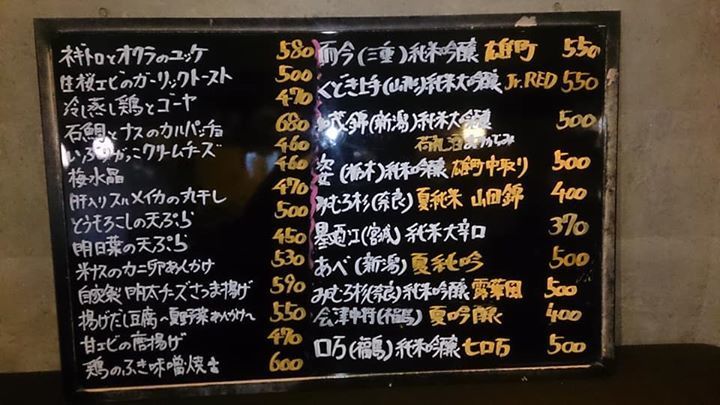 ネギトロとオクラのユッケ 580
生桜エビのガーリックトースト 500
冷し蒸し鶏とゴーヤ 470
石鯛とナスのカルパッチョ 680
いぶりがっこクリームチーズ 460
梅水晶 460
肝入りスルメイカの丸干し 470
とうもろこしの天ぷら 500
明日葉の天ぷら 450
米ナスのカニ卵あんかけ 530
自家製 明太チーズさつま揚げ 590
揚げだし豆腐〜夏野菜あんかけ〜 550
甘エビの唐揚げ 470
鶏のふき味噌焼き 600
而今(三重)純米吟醸 雄町 550
くどき上手(山形)純米大吟醸 Jr.RED 550
錦(新潟)純米大吟醸 500
荷札酒
姿(栃木)純米吟醸 雄町中取り 500
みむろ杉(奈良)夏純米 山田錦 400
墨廼江(宮城)純米大辛口 370
あべ(新潟)夏純吟 500
みむろ杉(奈良)純米吟醸 露葉風 500
会津中将(福島)夏吟醸 400
ロ万(福島)純米吟醸 七ロ万 500